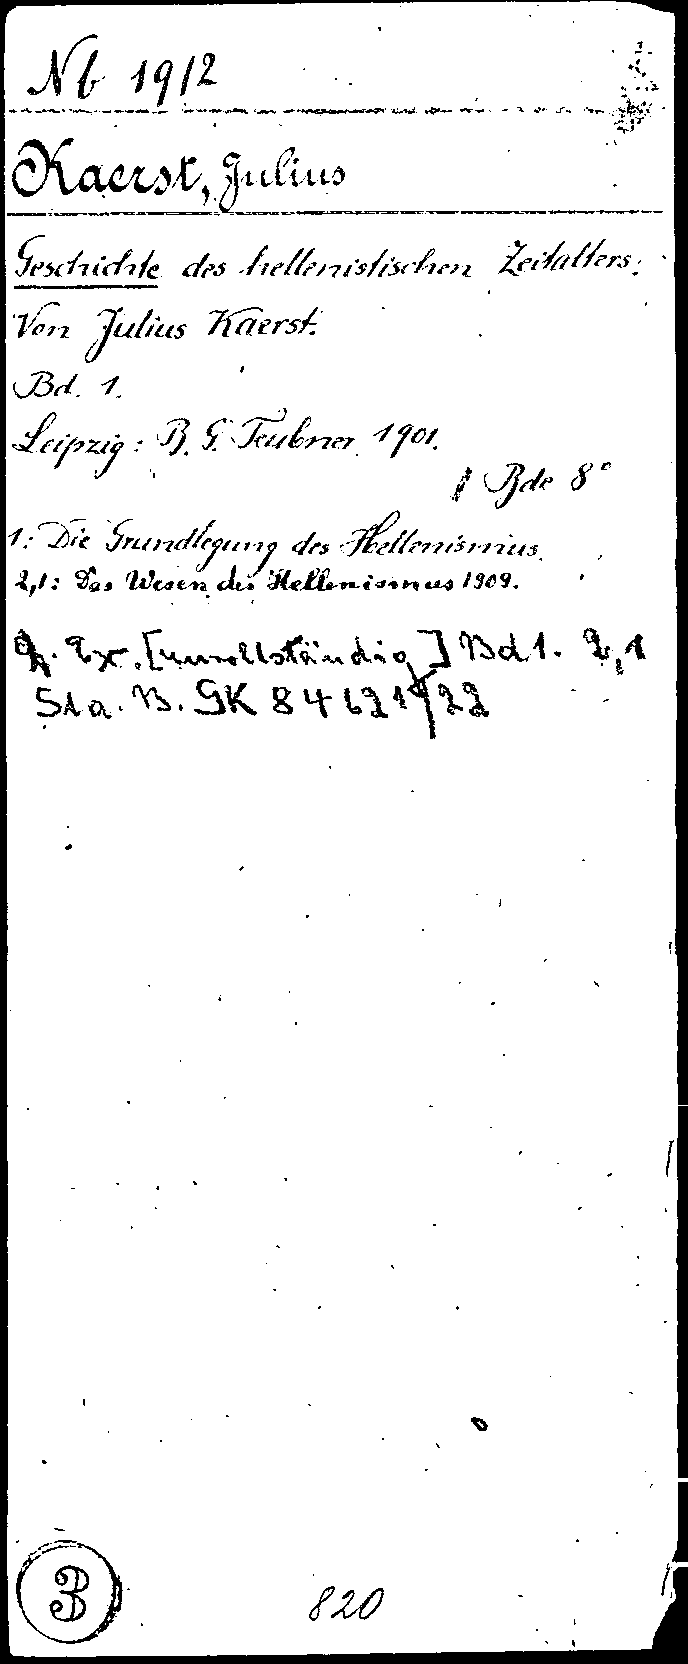 Nb 1912
Kaerst, Julius
Geschichte des hellenistischen Zeitalters.
Von Julius Kaerst.
Bd. 1.
Leipzig: B. G. Teubner 1901.
Bde 8°
1: Die Grundlegung des Hellenismus.
2,1: Das Wesen des Hellenismus 1909.
2. Ex. [unvollständig] Bd 1. 2,1
Sta. B. GK 84 621/22
3
820